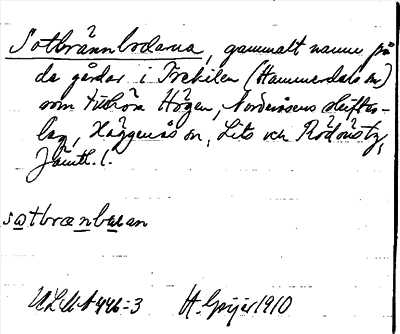 Sotbrännbodarna, gammalt namn på
de gårdar i Trekilen (Hammerdals sn)
som tillhöra Högen, Norderåsens skifts-
lag, Häggenås sn, Lits och Rödöns tg,
Jämtl. l.
sɷtbrænbɷan
ULMA 446:3 H. Geijer 1910